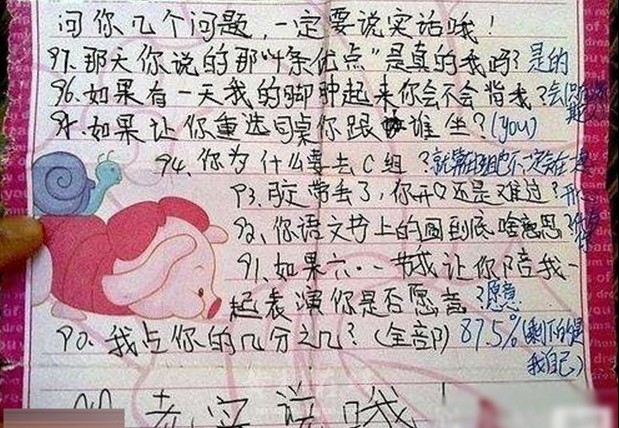 问你几个问题,一定要说实话哦!
97.那天你说的那"4条优点"是真的我吗?是的
96.如果有一天我的脚肿起来你会不会背我?会
95.如果让你重选同桌你跟谁坐?(you)
94.你为什么要去C组?
93.脏带丢了,你开心还是难过?
92、你语文书上的圈到底啥意思?
91.如果六·一节我让你陪我一
起表演你是否愿意?愿意
90.我占你的几分之几?(全部)87.5%(剩下的是
我自己)
老实说哦!